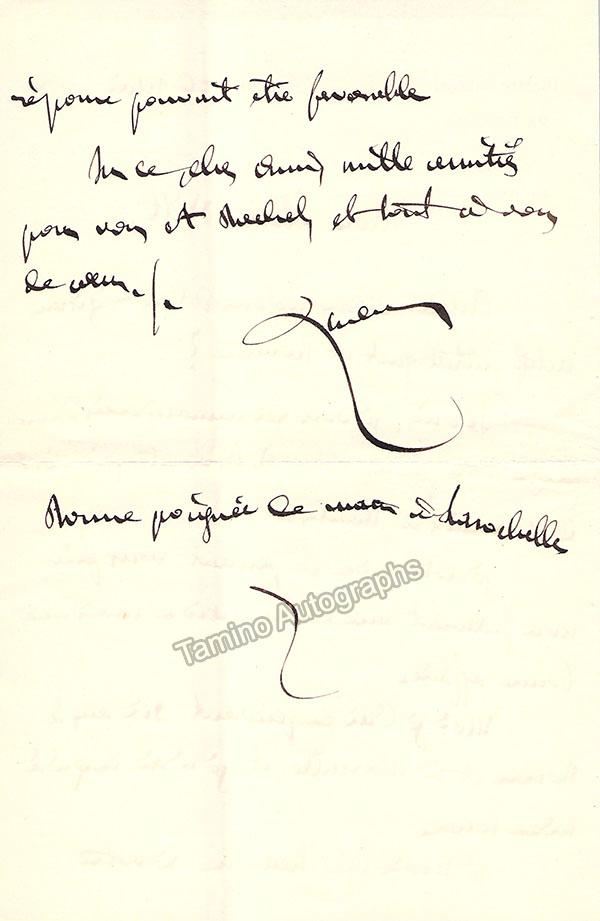 réponse pouvait être favorable
Sur ce, cher ami, mille amitiés
pour vous et Rachel, et tout à vous
de cœur ./.
Bonne poignée de main à Larochelle
Tamino Autographs